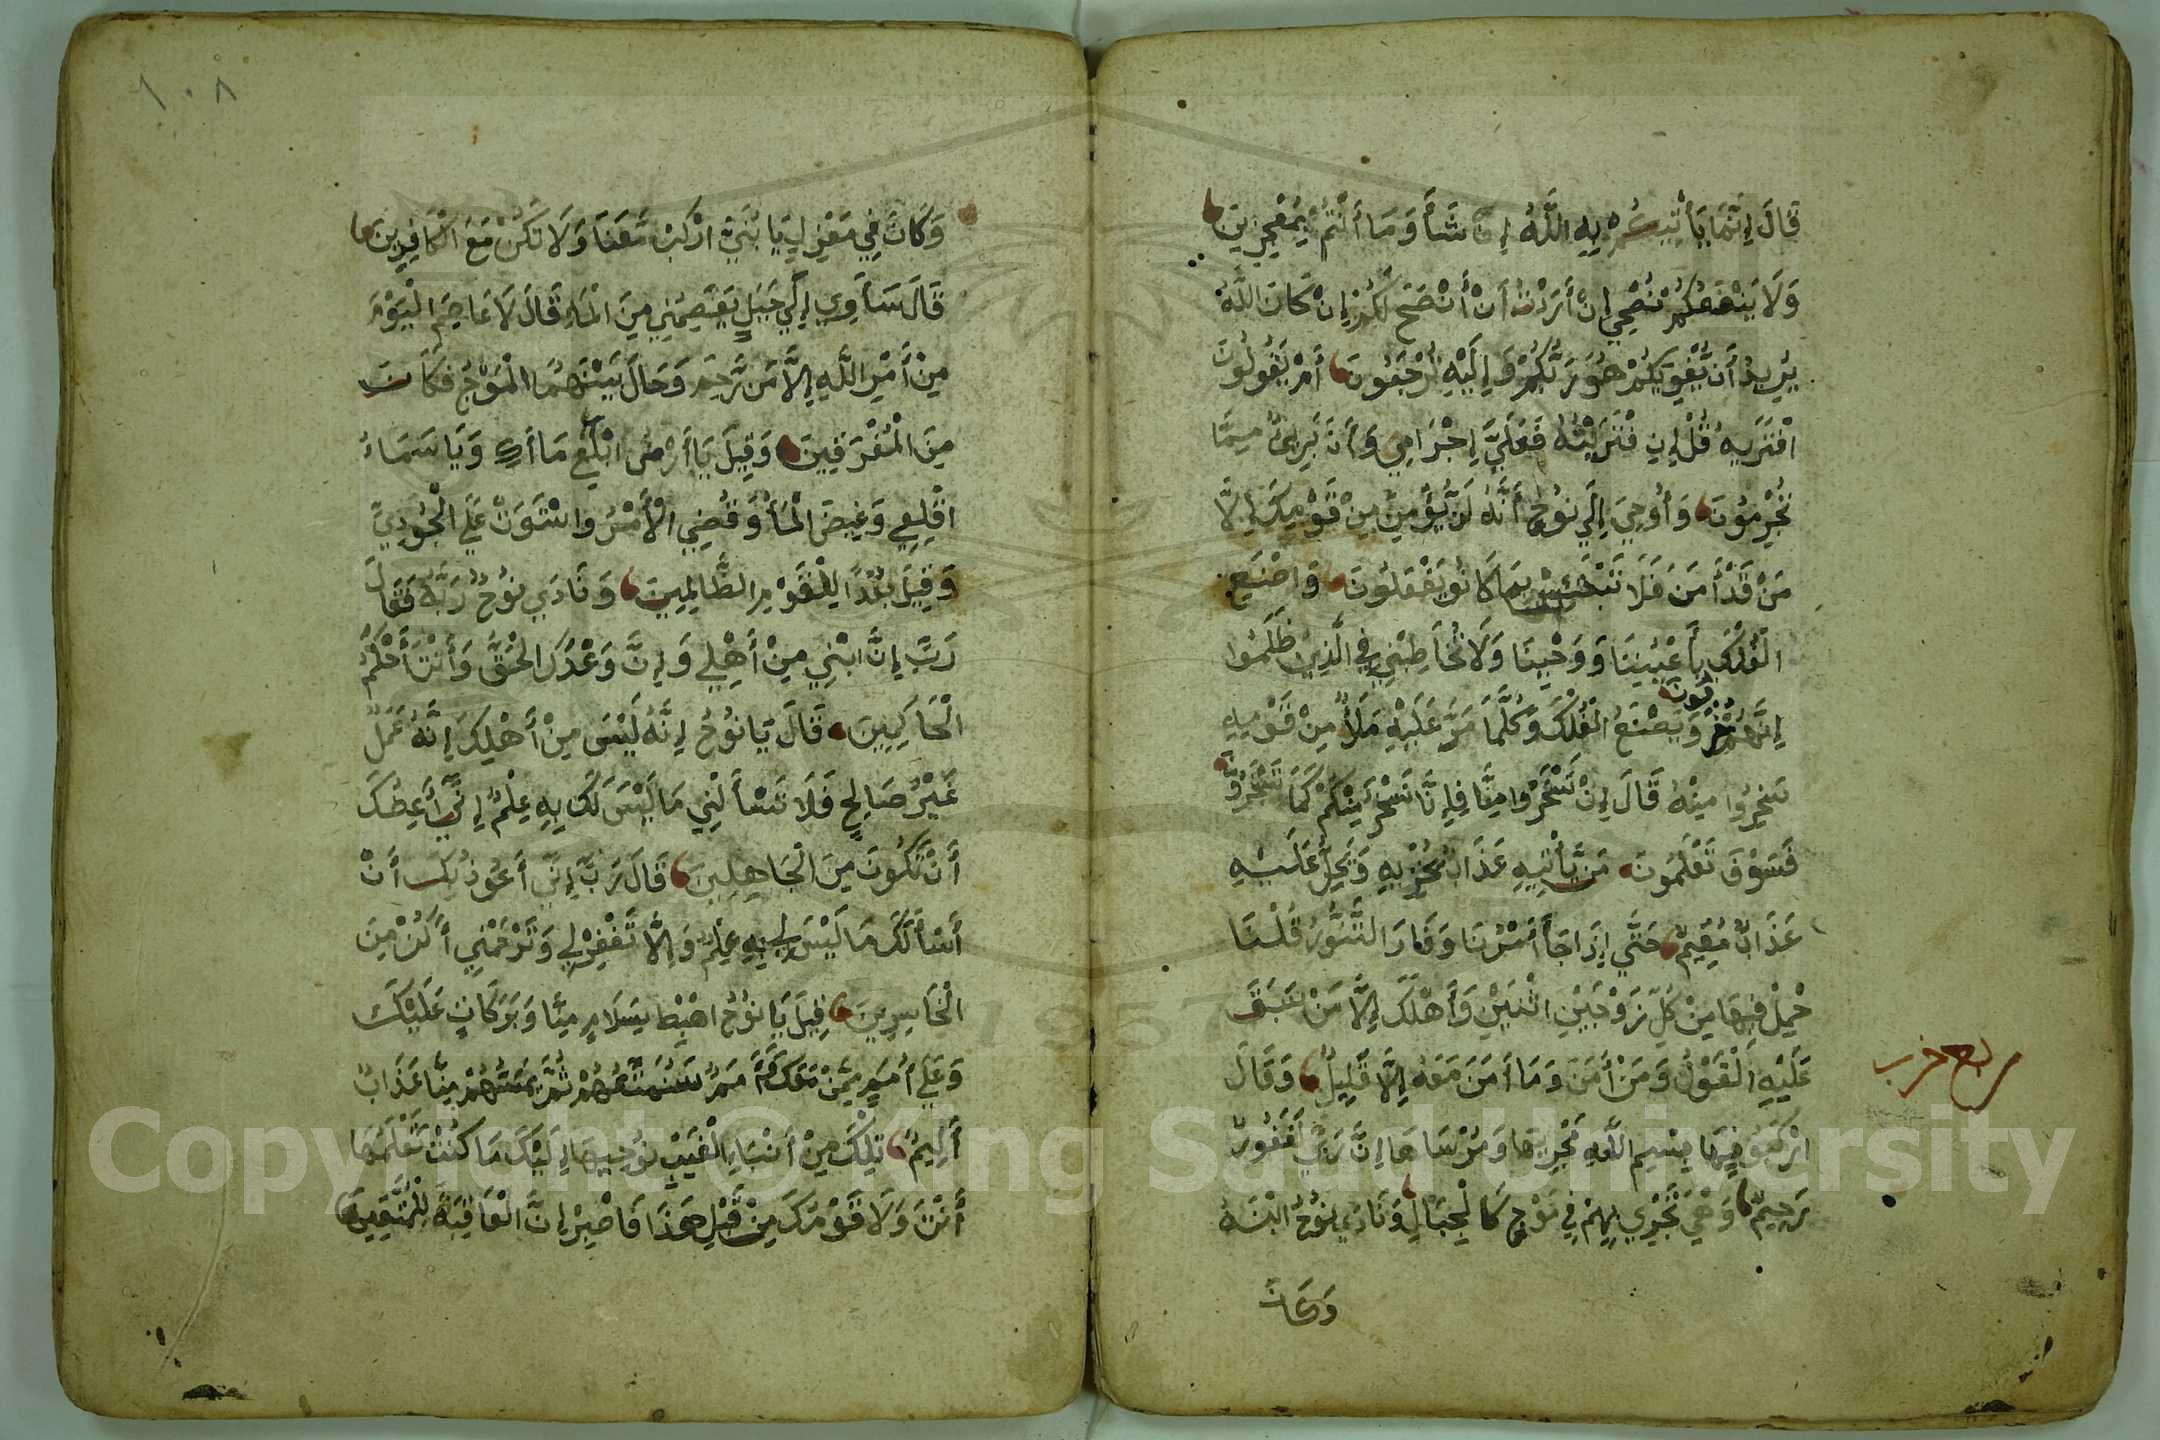 قَالَ إِنَّمَا يَأْتِيكُمْ بِهِ اللَّهُ إِنْ شَأَ وَمَا أَنْتُمْ بِمُعْجِزِينَ
وَلَا يَنْفَعُكُمْ نُصْحِي إِنْ أَرَدْتُ أَنْ أَنْصَحَ لَكُمْ إِنْ كَانَ اللَّهُ
يُرِيدُ أَنْ يُغْوِيَكُمْ هُوَ رَبُّكُمْ وَإِلَيْهِ تُرْجَعُونَ أَمْ يَقُولُونَ
افْتَرَيهُ قُلْ إِنِ فْتَرَيْتُهُ فَعَلَيَّ إِجْرَامِي وَأَنَ بَرِئٌ مِمَّا
تُجْرِمُونَ وَأُوحِيَ إِلَي نُوحٍ أَنَّهُ لَنْ يُؤْمِنَ مِنْ قَوْمِكَ إِلَّا
مَنْ قَدْ أَمَنَ فَلَا تَبْتَئِسْ بِمَا كَانُو يَفْعَلُونَ وَاصْنَعِ
الْفُلْكَ بِأَعْيُنِنَا وَوَحْيِنَا وَلَا تُخَاطِبْنِي فِي الَّذِينَ ظَلَمُوا
إِنَّهُمْ مُغْرَقُونَ وَيَصْنَعُ الْفُلْكَ وَكُلَّمَا مَرَّ عَلَيْهِ مَلَأٌ مِنْ قَوْمِهِ
سَخِرُوا مِنْهُ قَالَ إِنْ تَسْخَرُوا مِنَّا فَإِنَّا نَسْخَرُ مِنْكُمْ كَمَا تَسْخَرُونَ
فَسَوْفَ تَعْلَمُونَ مَنْ يَأْتِيهِ عَذَابٌ يُخْزِيهِ وَيَحِلُّ عَلَيْهِ
عَذَابٌ مُقِيمٌ حَتَّي إِذَا جَأَ أَمْرُنَا وَفَارَ التَّنُّورُ قُلْنَا
حْمِلْ فِيهَا مِنْ كُلِّ زَوْجَيْنِ اثْنَيْنِ وَأَهْلَكَ إِلَّا مَنْ سَبَقَ
عَلَيْهِ الْقَوْلُ وَمَنْ أَمَنَ وَمَا أَمَنَ مَعَهُ إِلَّا قَلِيلٌ وَقَالَ
ربع حزب
ارْكَبُو فِيهَا بِسْمِ اللَّهِ مَجْرِيهَا وَمُرْسَاهَا إِنَّ رَبِّي لَغَفُورٌ
رَحِيمٌ وَهْيَ تَجْرِي بِهِمْ فِي مَوْجٍ كَالْجِبَالِ وَنَادَي نُوحٌ ابْنَهُ
وَكَانَ
١٠٨
وَكَانَ فِي مَعْزِلٍ يَا بُنَيَّ ارْكَبْ مَعَنَا وَلَا تَكُنْ مَعَ الْكَافِرِينَ
قَالَ سَأَوِي إِلَي جَبَلٍ يَعْصِمُنِي مِنَ الْمَاءِ قَالَ لَا عَاصِمَ الْيَوْمَ
مِنْ أَمْرِ اللَّهِ إِلَّا مَنْ رَّحِمَ وَحَالَ بَيْنَهُمَا الْمَوْجُ فَكَانَ
مِنَ الْمُغْرَقِينَ وَقِيلَ يَا أَرْضُ ابْلَعِي مَا أَكِ وَيَا سَمَاءُ
اقْلِعِي وَغِيضَ الْمَأُ وَقُضِيَ الْأَمْرُ وَاسْتَوَتْ عَلَي الْجُودِيِّ
وَقِيلَ بُعْدًا لِلْقَوْمِ الظَّالِمِينَ وَنَادَي نُوحٌ رَبَّهُ فَقَالَ
رَبِّ إِنَّ ابْنِي مِنْ أَهْلِي وَإِنَّ وَعْدَكَ الْحَقُّ وَأَنْتَ أَحْكَمُ
الْحَاكِمِينَ قَالَ يَا نُوحُ إِنَّهُ لَيْسَ مِنْ أَهْلِكَ إِنَّهُ عَمَلٌ
غَيْرُ صَالِحٍ فَلَا تَسْأَلْنِي مَا لَيْسَ لَكَ بِهِ عِلْمٌ إِنِّي أَعِظُكَ
أَنْ تَكُونَ مِنَ الْجَاهِلِينَ قَالَ رَبِّ إِنِّي أَعُوذُ بِكَ أَنْ
أَسْأَلَكَ مَا لَيْسَ لِي بِهِ عِلْمٌ وَإِلَّا تَغْفِرْ لِي وَتَرْحَمْنِي أَكُنْ مِنَ
الْخَاسِرِينَ قِيلَ يَا نُوحُ اهْبِطْ بِسَلَامٍ مِنَّا وَبَرَكَاتٍ عَلَيْكَ
وَعَلَي أُمَمٍ مِمَّنْ مَعَكَ وَأُمَمٌ سَنُمَتِّعُهُمْ ثُمَّ يَمَسُّهُمْ مِنَّا عَذَابٌ
أَلِيمٌ تِلْكَ مِنْ أَنْبَاءِ الْغَيْبِ نُوحِيهَا إِلَيْكَ مَا كُنْتَ تَعْلَمُهَا
أَنْتَ وَلَا قَوْمُكَ مِنْ قَبْلِ هَذَا فَاصْبِرْ إِنَّ الْعَاقِبَةَ لِلْمُتَّقِينَ
Copyright © King Saud University